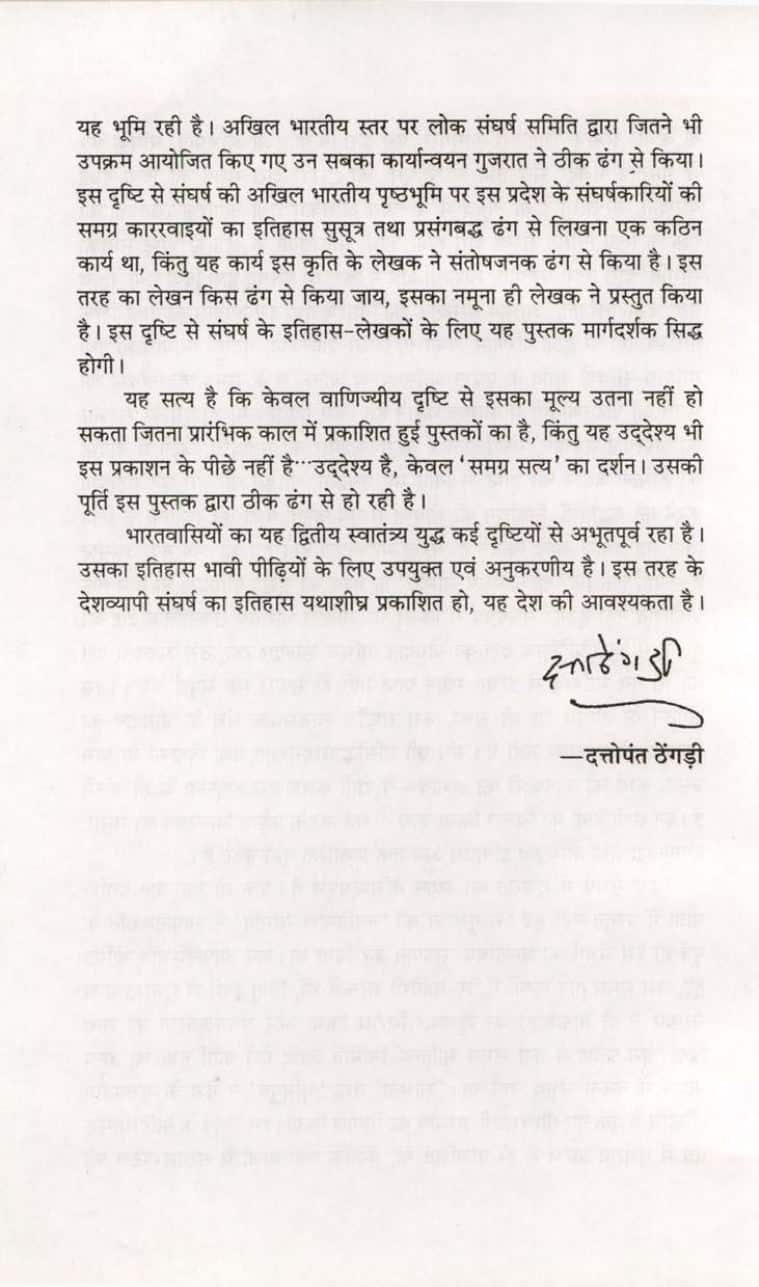 यह भूमि रही है। अखिल भारतीय स्तर पर लोक संघर्ष समिति द्वारा जितने भी
उपक्रम आयोजित किए गए उन सबका कार्यान्वयन गुजरात ने ठीक ढंग से किया।
इस दृष्टि से संघर्ष की अखिल भारतीय पृष्ठभूमि पर इस प्रदेश के संघर्षकारियों की
समग्र काररवाइयों का इतिहास सुसूत्र तथा प्रसंगबद्ध ढंग से लिखना एक कठिन
कार्य था, किंतु यह कार्य इस कृति के लेखक ने संतोषजनक ढंग से किया है। इस
तरह का लेखन किस ढंग से किया जाय, इसका नमूना ही लेखक ने प्रस्तुत किया
है। इस दृष्टि से संघर्ष के इतिहास-लेखकों के लिए यह पुस्तक मार्गदर्शक सिद्ध
होगी।
यह सत्य है कि केवल वाणिज्यीय दृष्टि से इसका मूल्य उतना नहीं हो
सकता जितना प्रारंभिक काल में प्रकाशित हुई पुस्तकों का है, किंतु यह उद्देश्य भी
इस प्रकाशन के पीछे नहीं है···उद्देश्य है, केवल 'समग्र सत्य' का दर्शन। उसकी
पूर्ति इस पुस्तक द्वारा ठीक ढंग से हो रही है।
भारतवासियों का यह द्वितीय स्वातंत्र्य युद्ध कई दृष्टियों से अभूतपूर्व रहा है।
उसका इतिहास भावी पीढ़ियों के लिए उपयुक्त एवं अनुकरणीय है। इस तरह के
देशव्यापी संघर्ष का इतिहास यथाशीघ्र प्रकाशित हो, यह देश की आवश्यकता है।
—दत्तोपंत ठेंगड़ी